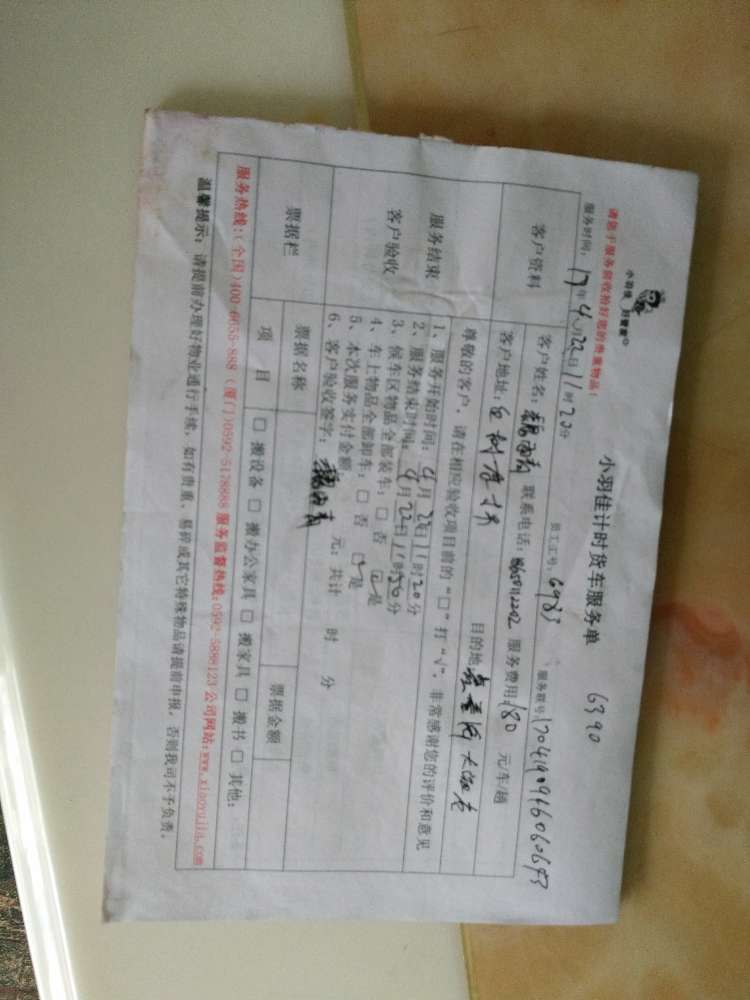 小羽佳 好管家
小羽佳计时货车服务单 6390
请您于服务前收拾好您的贵重物品！
服务时间：17年4月22日11时20分 员工工号：6983 服务联号：
客户资料
客户姓名： 联系电话： 服务费用180元车/趟
客户地址： 目的地
尊敬的客户，请在相应验收项目前的“□”打“√”，非常感谢您的评价和意见
服务结束
客户验收
1、服务开始时间：4月22日11时20分
2、服务结束时间：4月22日11时56分
3、候车区物品全部装车：□ 否 ☑ 是
4、车上物品全部卸车：□ 否 ☑ 是
5、本次服务实付金额： 元；共计 时 分
6、客户验收签字：
票据栏
票据名称 票据金额
项 目 □ 搬设备 □ 搬办公家具 □ 搬家具 □ 搬书 □ 其他：
服务热线：(全国)400-6655-888 (厦门)0592-5178888 服务监督热线:0592-5888123 公司网站:www.xiaoyujia.com
温馨提示：请提前办理好物业通行手续，如有贵重、易碎或其它特殊物品请提前申报，否则我司不予负责。